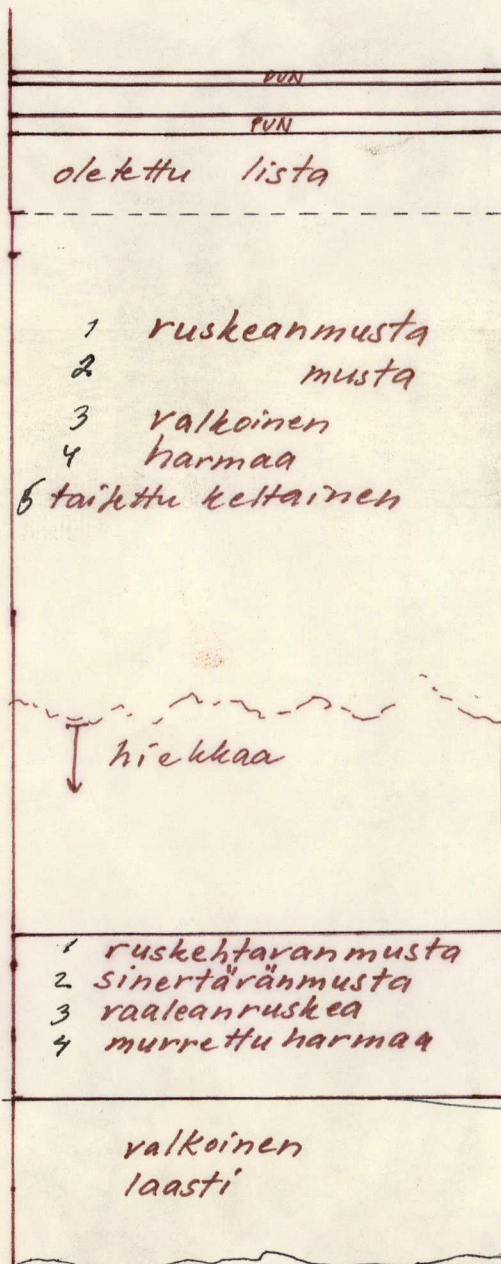 PUN
PUN
oletettu lista
1 ruskeanmusta
2 musta
3 valkoinen
4 harmaa
5 taitettu keltainen
hiekkaa
1 ruskehtavanmusta
2 sinertävänmusta
3 vaaleanruskea
4 murrettu harmaa
valkoinen
laasti